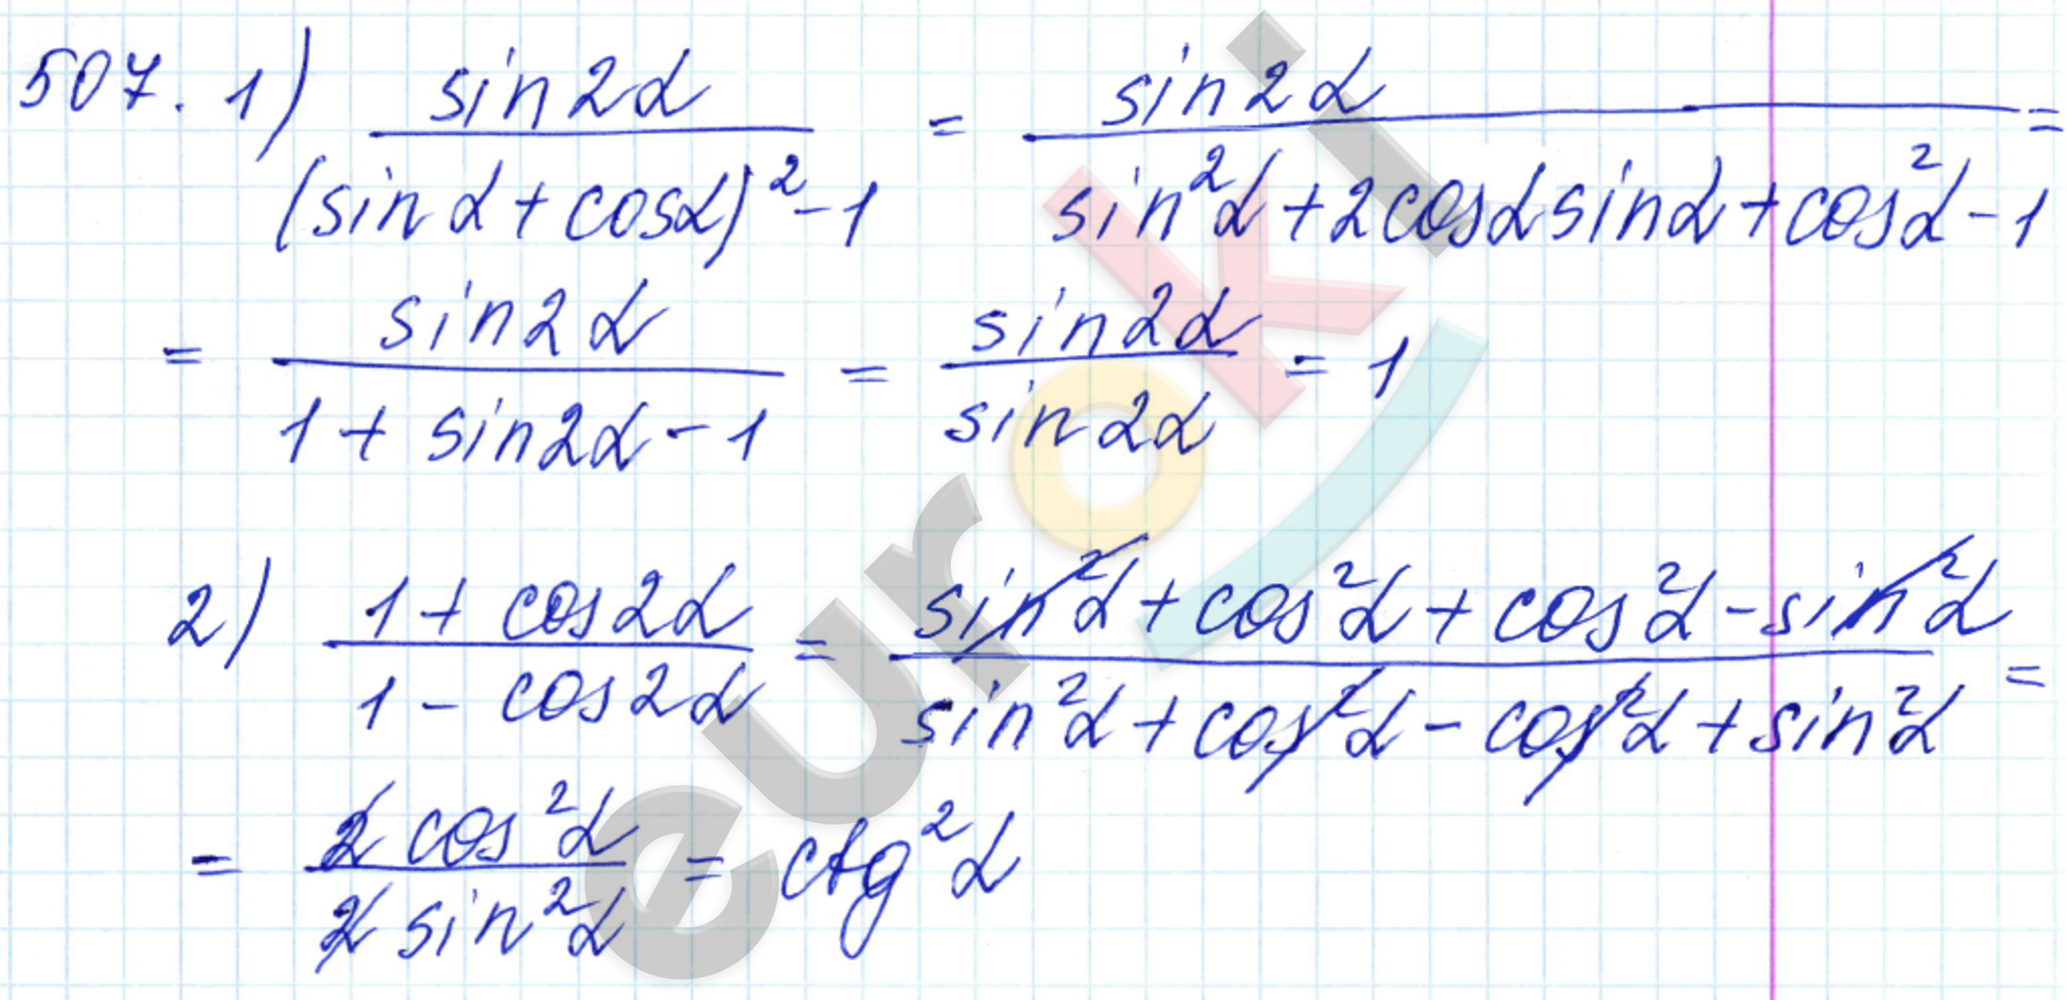 507. 1) sin2α / ((sinα + cosα)² - 1) = sin2α / (sin²α + 2cosα sinα + cos²α - 1) =
= sin2α / (1 + sin2α - 1) = sin2α / sin2α = 1
2) (1 + cos2α) / (1 - cos2α) = (sin²α + cos²α + cos²α - sin²α) / (sin²α + cos²α - cos²α + sin²α) =
= 2cos²α / 2sin²α = ctg²α
euroki